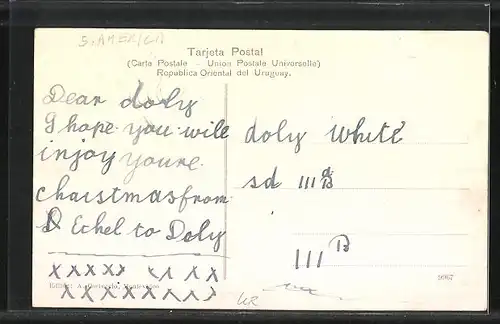 S. AMERICA
Tarjeta Postal
(Carta Postale - Union Postale Universelle)
Republica Oriental del Uruguay.
Dear doly
I hope you will
injoy youre
chaistmas from
Ethel to Doly
XXXXX XXXX
XXXXXXXXX
doly White
sd IIIB
III B
Editor: A. Carluccio, Montevideo
5067
UR